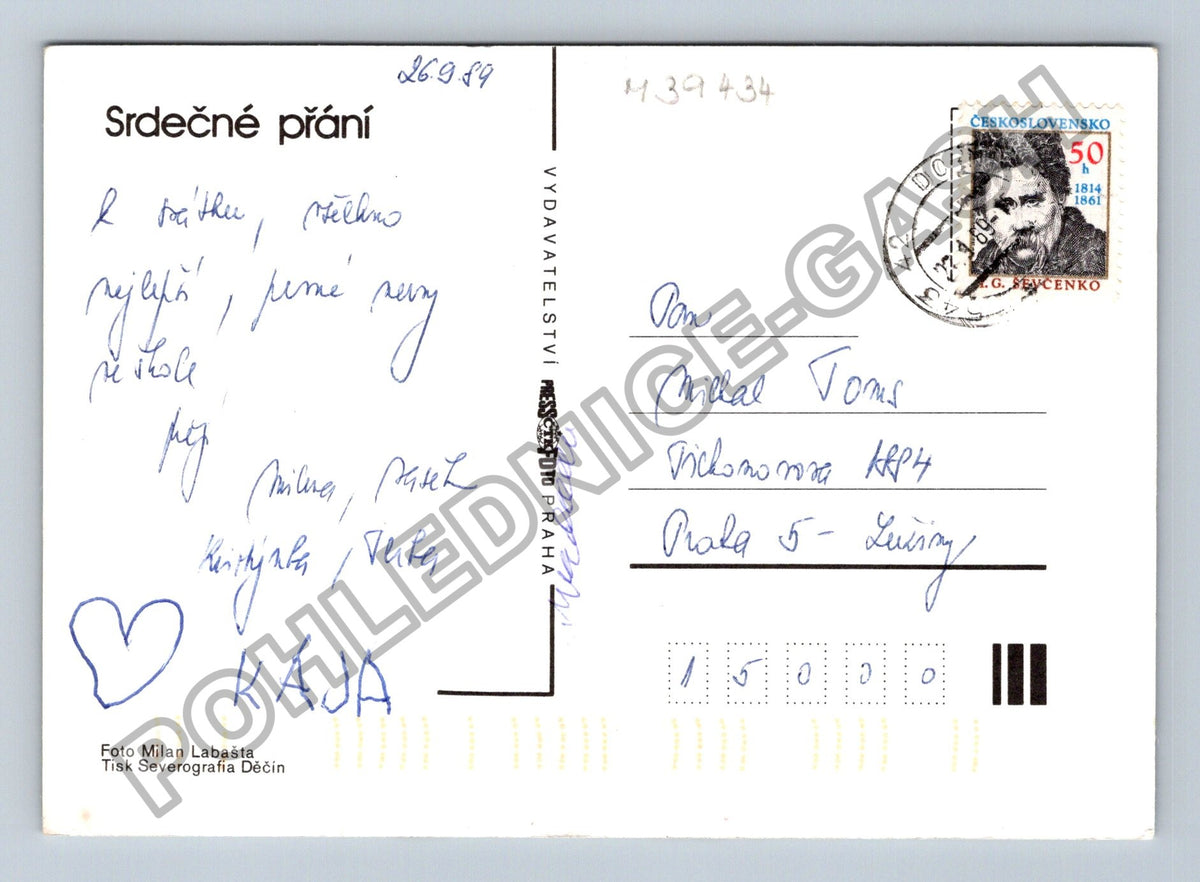 26.9.89
Srdečné přání
k svátku, všechno
nejlepší, pevné nervy
ve škole
přejí
Milena, Vašek
Kristýnka, Terka
KÁJA
Foto Milan Labašta
Tisk Severografia Děčín
VYDAVATELSTVÍ PRESSFOTO PRAHA
ČTK
M 39 434
ČESKOSLOVENSKO
50
h
1814
1861
T. G. ŠEVČENKO
543 42
Pan
Michal Toms
Praha 5 - Lužiny
15000
POHLEDNICE-GASH